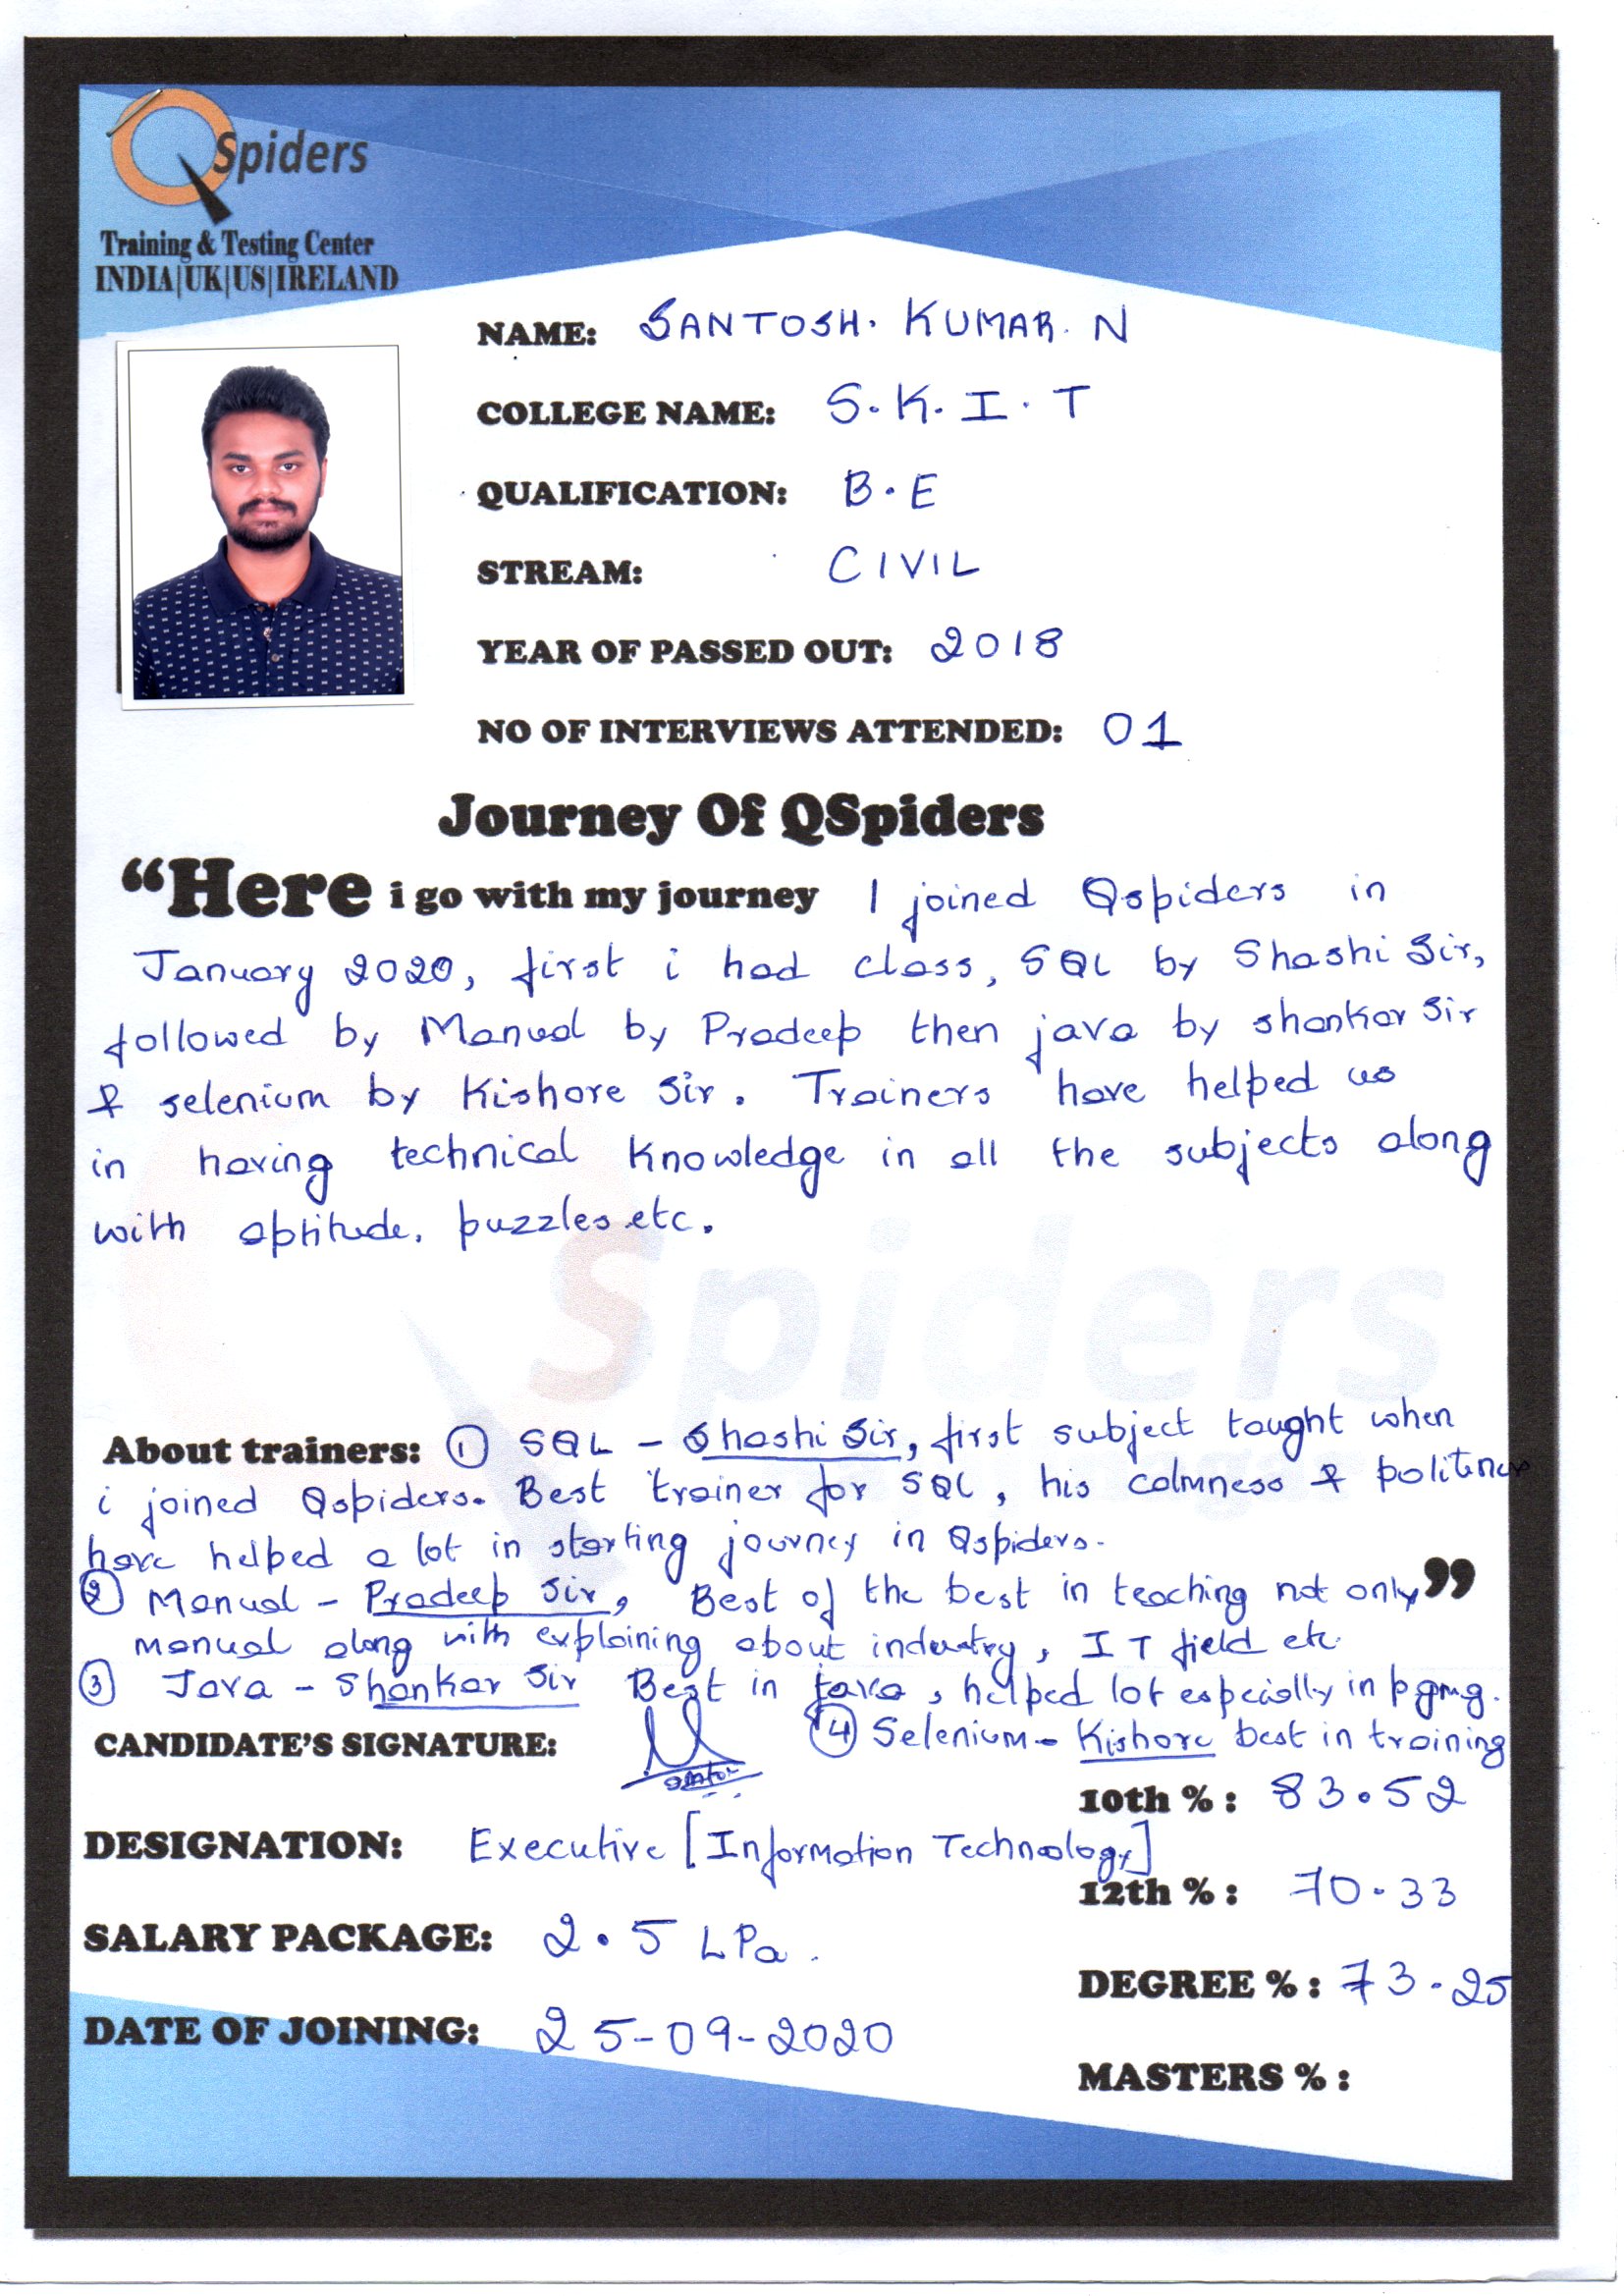 QSpiders
Training & Testing Center
INDIA|UK|US|IRELAND
NAME: SANTOSH. KUMAR. N
COLLEGE NAME: S.K.I.T
QUALIFICATION: B.E
STREAM: CIVIL
YEAR OF PASSED OUT: 2018
NO OF INTERVIEWS ATTENDED: 01
Journey Of QSpiders
“Here i go with my journey I joined Qspiders in
January 2020, first i had class, SQL by Shashi Sir,
followed by Manual by Pradeep then java by shankar Sir
& selenium by Kishore Sir. Trainers have helped us
in having technical knowledge in all the subjects along
with aptitude, puzzles etc.
Spiders
About trainers: ① SQL - Shashi Sir, first subject taught when
i joined Qspiders. Best trainer for SQL, his calmness & politeness
have helped a lot in starting journey in Qspiders.
② Manual - Pradeep Sir, Best of the best in teaching not only ”
manual along with explaining about industry, IT field etc
③ Java - Shankar Sir Best in java, helped lot especially in pgmg.
④ Selenium - Kishore best in training
CANDIDATE'S SIGNATURE:
10th %: 83.52
DESIGNATION: Executive [Information Technology]
12th %: 70.33
SALARY PACKAGE: 2.5 LPa.
DEGREE %: 73.25
DATE OF JOINING: 25-09-2020
MASTERS %: